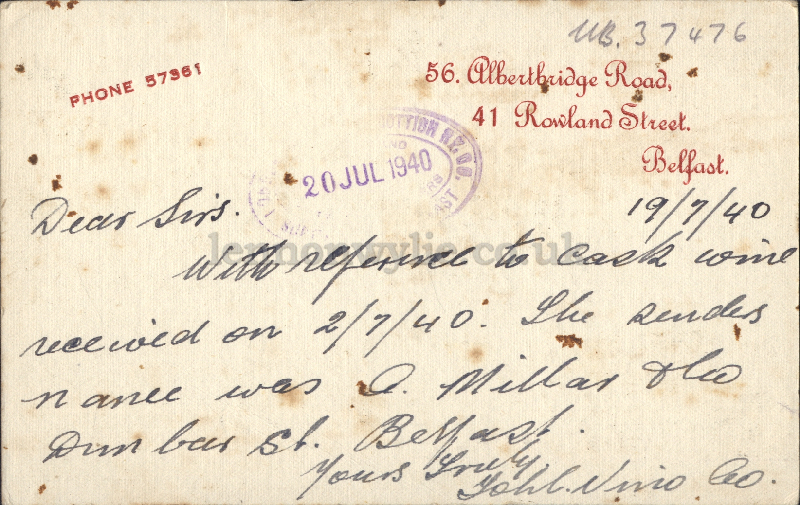 UB. 37476
PHONE 57361
56. Albertbridge Road,
41 Rowland Street.
Belfast.
20 JUL 1940
19/7/40
Dear Sirs.
lennonwylie.co.uk
With reference to cask wine
received on 2/7/40. The senders
name was A. Millar & Co
Dunbar St. Belfast.
Yours Truly
Vino Co.